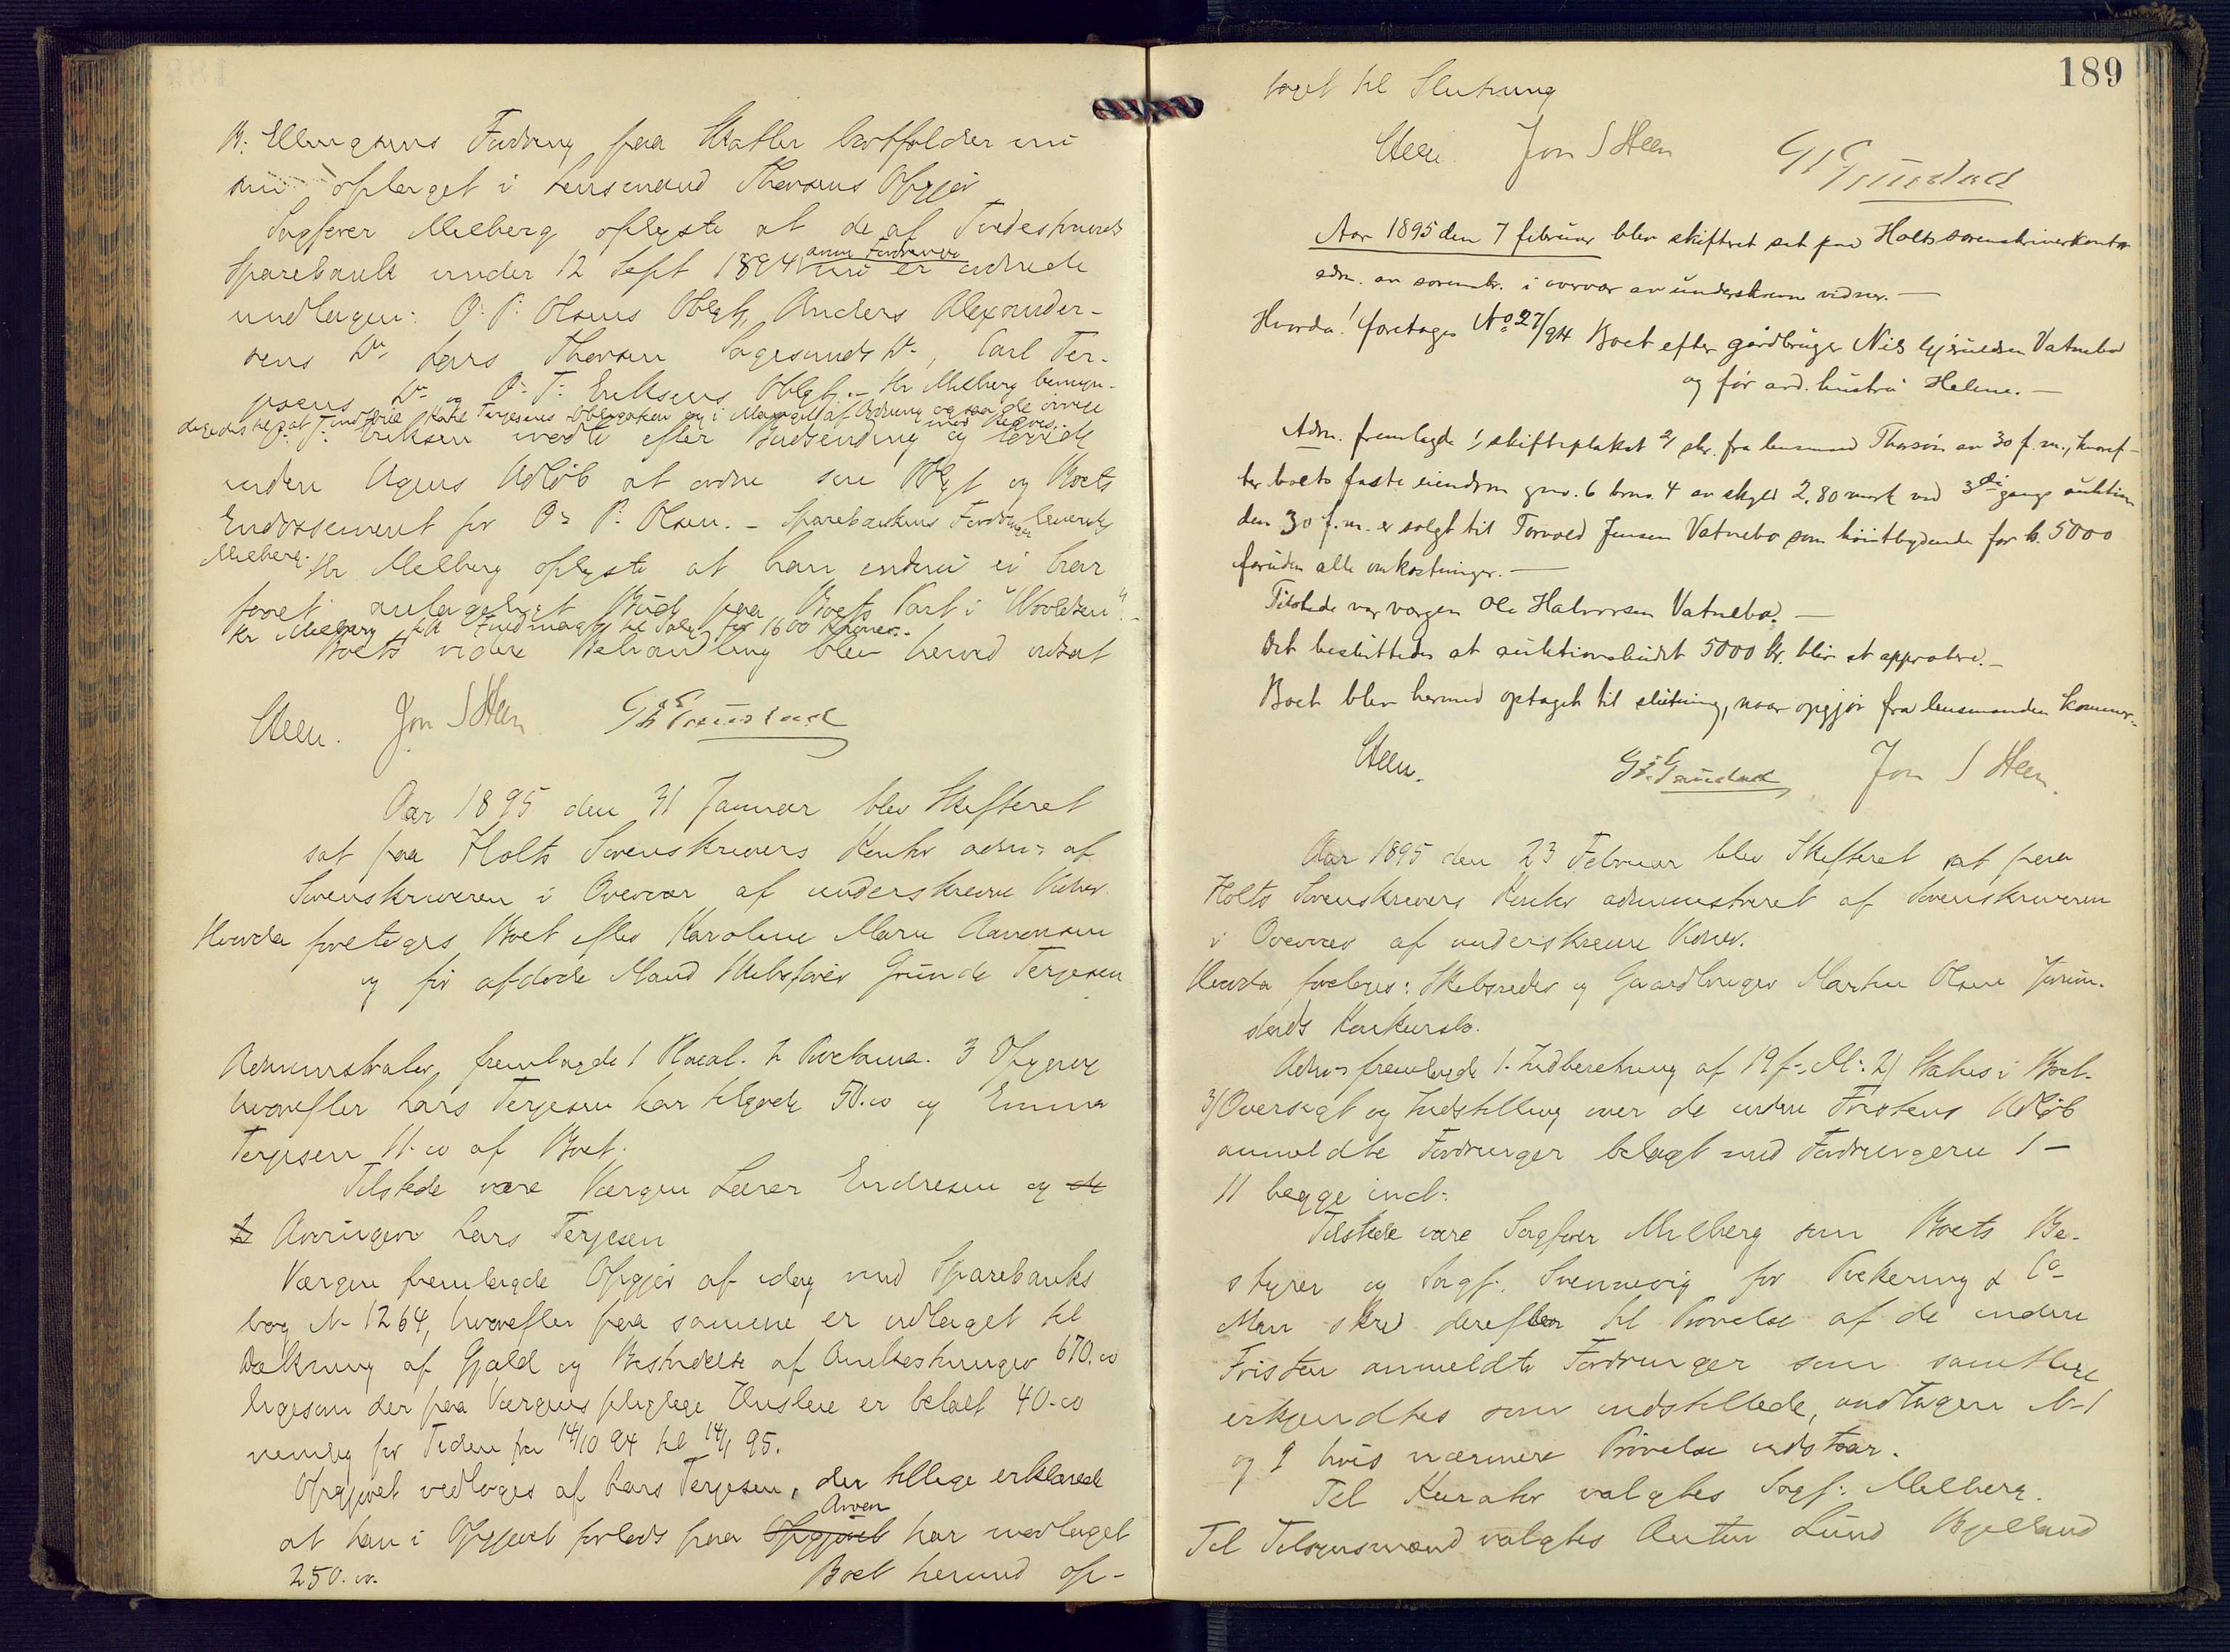 B. Ellingsens Fordring paa Skatter bortfalder uni
oplaget i Lensmand Thorsens Opgjør
Sagfører Melberg oplyste at de af Tvedestrands
anm Fordringer
Sparebank under 12 Sept 1894 nu er ordnede
undtagen: O. P. Olsens Oblgt, Anders Alexander-
sens Do, Lars Thorsen Sagesunds Do, Carl Ter-
jesens Do og O. T. Eriksens Oblgt. – Hr Melberg bemyn-
digedes til at indfrie Karl Terjesens Obligation og i Mangel af Ordning ogsaa de øvrige
O. T. Eriksen mødte efter Indsending og lovede
inden Ugens Udløb at ordne sin Oblgt og Boets
Endossement for O. P. Olsen. – Sparebankens Fordringer leveredes
Melberg. Hr Melberg oplyste at han endnu ei har
faaet antageligt Bud paa Boets Part i "Woldsen".
Hr Melberg fik Fuldmagt til Salg for 1600 Kroner.
Boets videre Behandling blev herved udsat
Steen. Jon S Steen
Aar 1895 den 31 Januar blev Skifteret
sat paa Holts Sorenskrivers Kontor adm: af
Sorenskriveren i Overvær af underskrevne Vidner.
Hvorda foretoges Boet efter Karoline Marie Aanonsen
og før afdøde Mand Skibsfører Gunde Terjesen
Administrator fremlagde 1 Placat. 2 Proclama. 3 Opgjør
hvorefter Lars Terjesen har tilgode 50.00 og Emma
Terjesen 11.00 af Boet.
Tilstede vare Værgen Lærer Endresen og de
2 Arvingen Lars Terjesen
Værgen fremlagde Opgjør af idag med Sparebanks
bog No 1264, hvorefter paa samme er udtaget til
Dækning af Gjæld og Bestridelse af Omkostninger 670.00
ligesom der paa Værgens pligtige Husleie er betalt 40.00
nemlig for Tiden fra 14/10 94 til 14/1 95.
Opgjøret vedtoges af Lars Terjesen, der tillige erklærede
Arven
at han i Opgjøret forlods paa Opgjøret har modtaget
250.00. Boet herved op-
189
taget til Slutning
Steen. Jon S Steen
Aar 1895 den 7 februar blev skifteret sat paa Holts sorenskriverkontor
adm. av sorenskr. i overvær av underskrevne vidner. —
Hvorda! foretoges No 27/94 Boet efter gårdbruger Nils Gjruldsen Vatnebo
og før avd. hustru Helene. —
Adm. fremlagde 1/ skifteplakat 2/ skr. fra lensmand Thorsen av 30 f. m., hvoref-
ter boets faste eiendom gno. 6 brno. 4 av skyld 2,80 mark ved 3die gangs auktion
den 30 f.m. er solgt til Torvald Jensen Vatnebo som høistbydende for kr. 5000
foruden alle omkostninger. —
Tilstede var værgen Ole Halvorsen Vatnebo. —
Det besluttedes at auktionsbudet 5000 kr. blir at approbere. —
Boet blev hermed optaget til slutning, naar opgjør fra lensmanden kommer.
Steen. Jon S Steen.
Aar 1895 den 23 Februar blev Skifteret sat paa
Holts Sorenskrivers Kontor administreret af Sorenskriveren
i Overvær af underskrevne Vidner.
Hvorda foretoges: Skibsreder og Gaardbruger Martin Olsen Jorun-
stads Konkursbo.
Adm: fremlagde 1. Indberetning af 19 f. M. 2/ Status i Boet.
3/ Oversigt og Indstilling over de inden Fristens Udløb
anmeldte Fordringer belagt med Fordringerne 1 –
11 begge incl:
Tilstede vare Sagfører Melberg som Boets Be-
styrer og Sagf. Svennevig for Pickering & Co
Man skred derefter til Prøvelse af de inden
Fristen anmeldte Fordringer som samtlige
erkjendtes som indstillede, undtagen No 1
og 9 hvis nærmere Prøvelse udstaar.
Til Kurator valgtes Sagf: Melberg.
Til Tilsynsmænd valgtes Anton Lund Bjelland